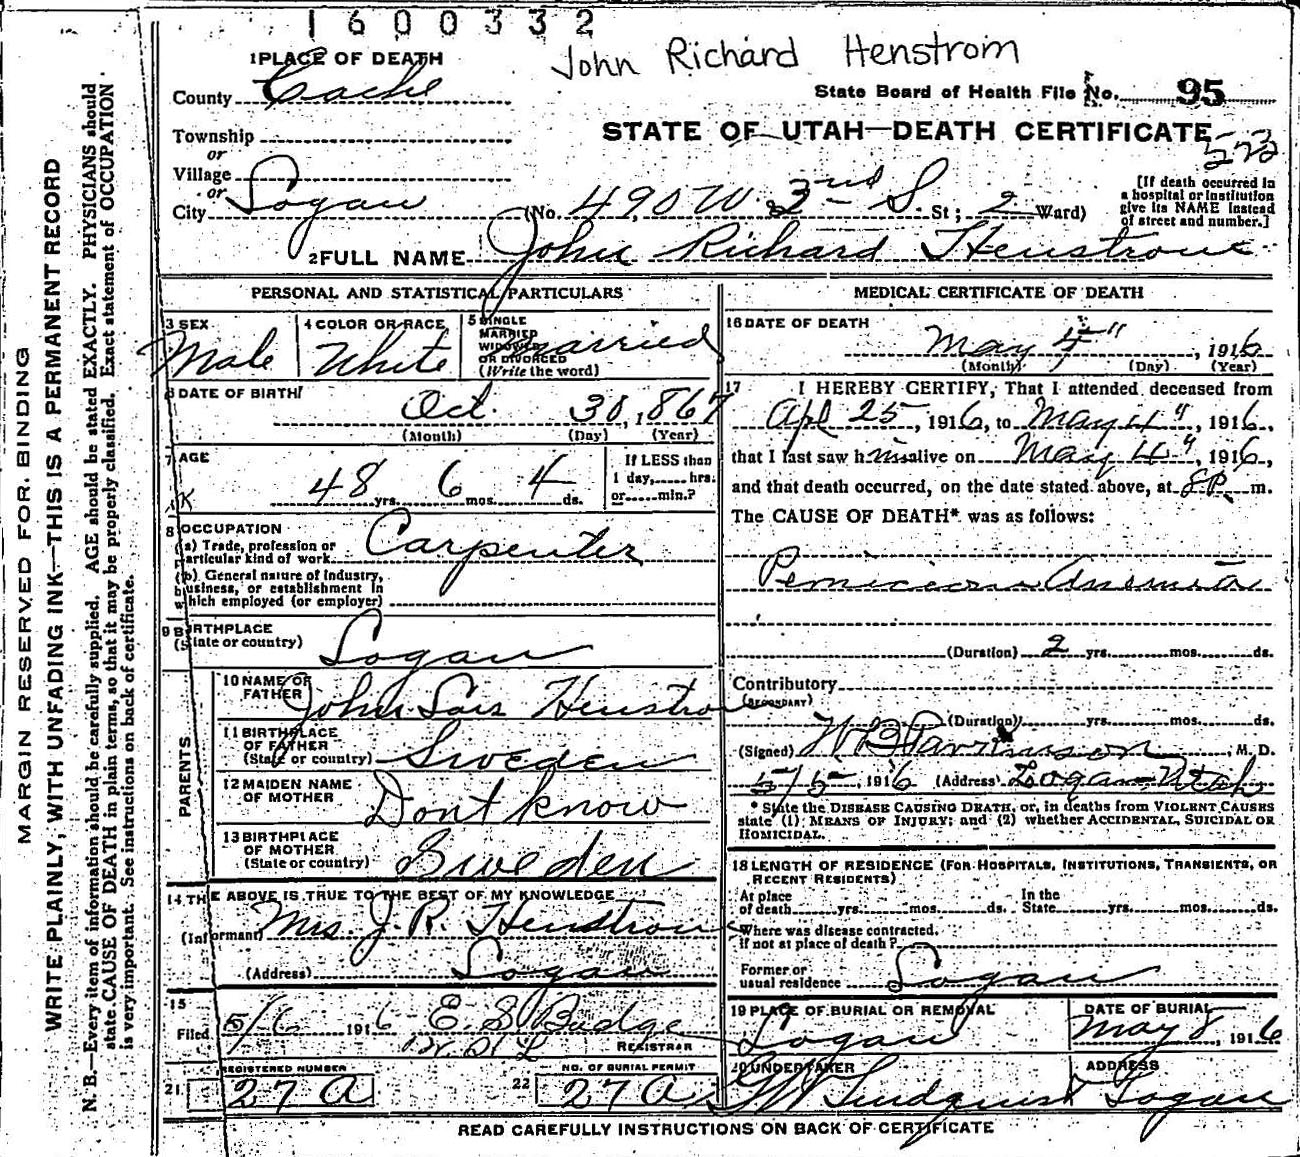 1600332
John Richard Henstrom
1 PLACE OF DEATH
County Cache
State Board of Health File No. 95
Township
STATE OF UTAH—DEATH CERTIFICATE
572
or
Village
or
City Logan (No. 490 W 3rd S. St; 2 Ward)
[If death occurred in
a hospital or institution
give its NAME instead
of street and number.]
2 FULL NAME John Richard Henstrom
PERSONAL AND STATISTICAL PARTICULARS
3 SEX
Male
4 COLOR OR RACE
White
5 SINGLE
MARRIED
WIDOWED
OR DIVORCED
(Write the word)
Married
6 DATE OF BIRTH
Oct. 30, 1867
(Month) (Day) (Year)
7 AGE
48 yrs. 6 mos. 4 ds.
If LESS than
1 day,......hrs.
or......min.?
K
8 OCCUPATION
(a) Trade, profession or
particular kind of work Carpenter
(b) General nature of industry,
business, or establishment in
which employed (or employer)
9 BIRTHPLACE
(State or country) Logan
PARENTS
10 NAME OF
FATHER John Lars Henstrom
11 BIRTHPLACE
OF FATHER
(State or country) Sweden
12 MAIDEN NAME
OF MOTHER Dont know
13 BIRTHPLACE
OF MOTHER
(State or country) Sweden
14 THE ABOVE IS TRUE TO THE BEST OF MY KNOWLEDGE
(Informant) Mrs. J. R. Henstrom
(Address) Logan
15
Filed 5/6 1916 E. S. Budge
REGISTRAR
REGISTERED NUMBER
21 27 A
NO. OF BURIAL PERMIT
22 27 A
MEDICAL CERTIFICATE OF DEATH
16 DATE OF DEATH
May 4", 1916
(Month) (Day) (Year)
17 I HEREBY CERTIFY, That I attended deceased from
Apl 25, 1916, to May 4", 1916,
that I last saw him alive on May 4", 1916,
and that death occurred, on the date stated above, at 8 P. m.
The CAUSE OF DEATH* was as follows:
Pernicious Anemia
(Duration) 2 yrs. mos. ds.
Contributory
(SECONDARY)
(Duration) yrs. mos. ds.
(Signed) W B Parkinson, M. D.
5/5, 1916 (Address) Logan Utah
* State the DISEASE CAUSING DEATH, or, in deaths from VIOLENT CAUSES
state (1) MEANS OF INJURY; and (2) whether ACCIDENTAL, SUICIDAL OR
HOMICIDAL.
18 LENGTH OF RESIDENCE (FOR HOSPITALS, INSTITUTIONS, TRANSIENTS, OR
RECENT RESIDENTS)
At place
of death yrs. mos. ds.
In the
State yrs. mos. ds.
Where was disease contracted,
if not at place of death?
Former or
usual residence Logan
19 PLACE OF BURIAL OR REMOVAL
Logan
DATE OF BURIAL
May 8, 1916
20 UNDERTAKER
Lindquist
ADDRESS
Logan
READ CAREFULLY INSTRUCTIONS ON BACK OF CERTIFICATE
MARGIN RESERVED FOR BINDING
WRITE PLAINLY, WITH UNFADING INK—THIS IS A PERMANENT RECORD
N. B.—Every item of information should be carefully supplied. AGE should be stated EXACTLY. PHYSICIANS should
state CAUSE OF DEATH in plain terms, so that it may be properly classified. Exact statement of OCCUPATION
is very important. See instructions on back of certificate.